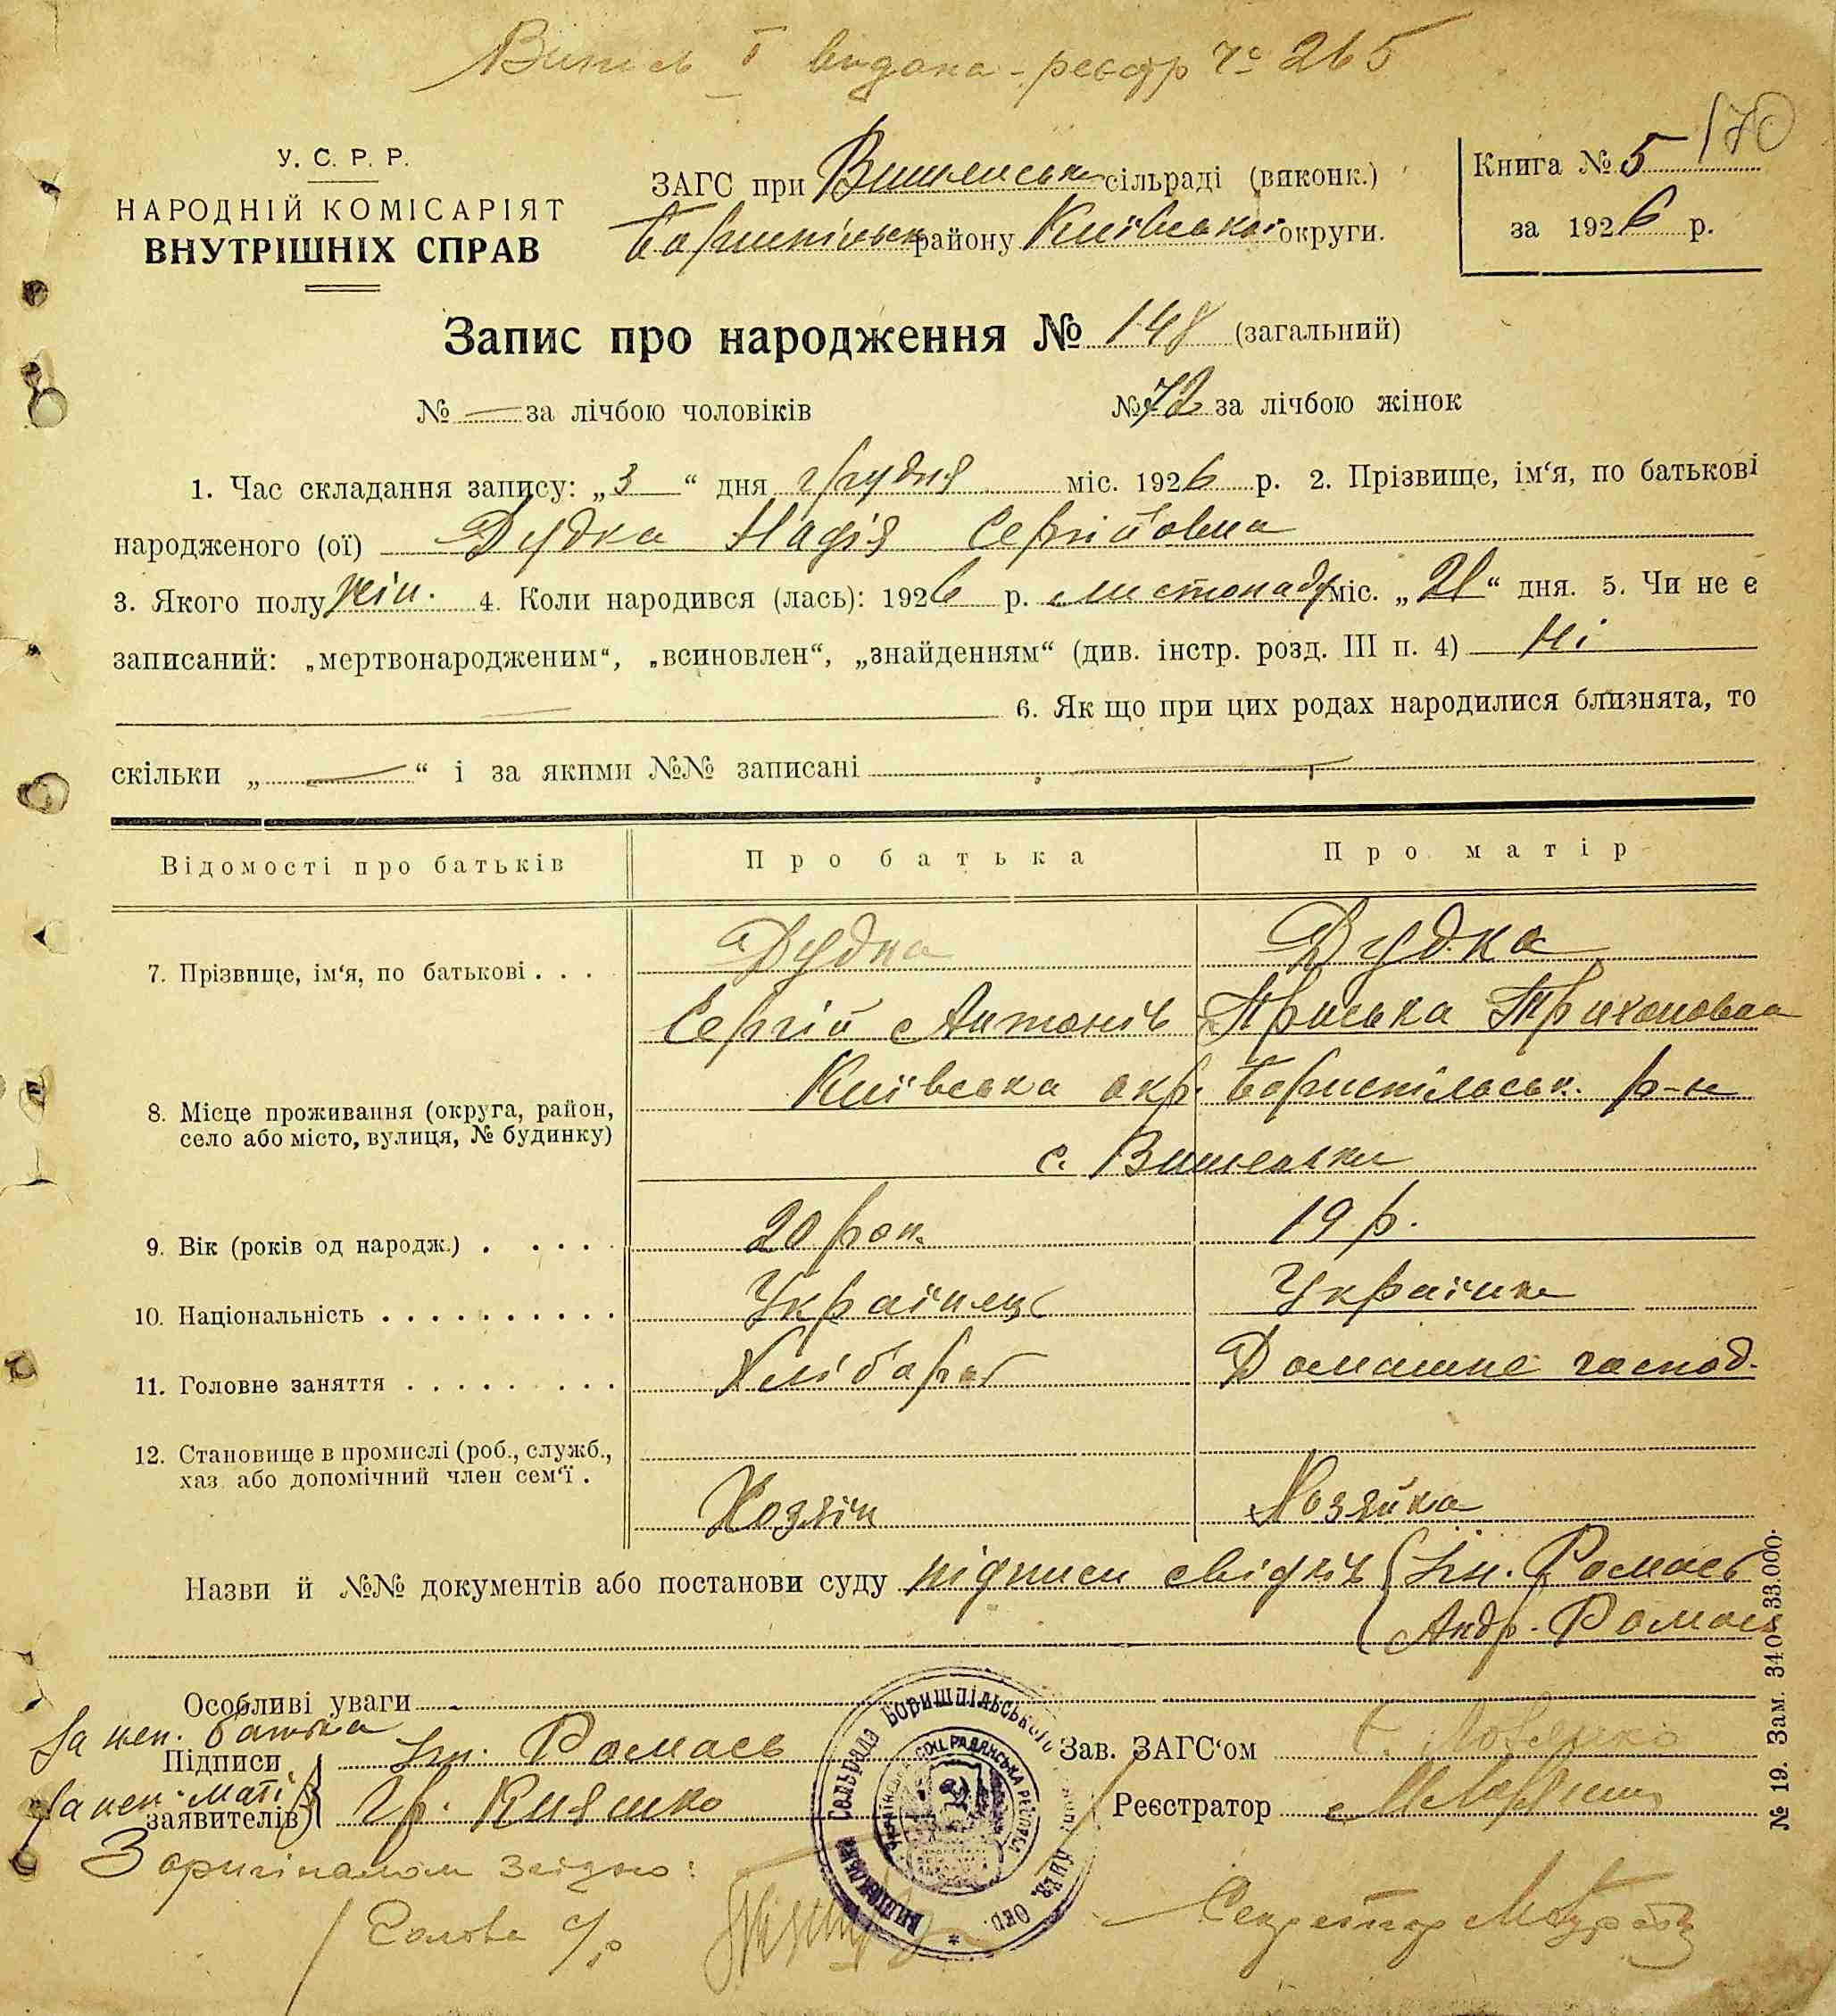 Випись І видана - реєстр № 265
170
У. С. Р. Р.
НАРОДНІЙ КОМІСАРІЯТ
ВНУТРІШНІХ СПРАВ
ЗАГС при Вишеньськ сільраді (виконк.)
Бориспільськ району Київської округи.
Книга № 5
за 1926 р.
Запис про народження № 148 (загальний)
№ — за лічбою чоловіків
№ 72 за лічбою жінок
1. Час складання запису: „3“ дня грудня міс. 1926 р. 2. Прізвище, ім‘я, по батькові
народженого (ої) Дудка Надія Сергійовна
3. Якого полу жін. 4. Коли народився (лась): 1926 р. листопаду міс. „21“ дня. 5. Чи не є
записаний: „мертвонародженим“, „всиновлен“, „знайденням“ (див. інстр. розд. III п. 4) Ні
6. Як що при цих родах народилися близнята, то
скільки „ — “ і за якими №№ записані —
Відомості про батьків
Про батька
Про матір
7. Прізвище, ім‘я, по батькові . . .
Дудка
Дудка
Сергій Антонів
Приська Трихоновна
8. Місце проживання (округа, район,
село або місто, вулиця, № будинку)
Київська окр. Бориспільськ. р-н
с. Вишеньки
9. Вік (років од народж.) . . . . .
20 рок.
19 р.
10. Національність . . . . . . . . . .
Українець
Українка
11. Головне заняття . . . . . . . . .
Хлібороб
Домашнє господ.
12. Становище в промислі (роб., служб.,
хаз або допомічний член сем‘ї .
Хозяін
Хозяйка
Назви й №№ документів або постанови суду підписи свідків Ін. Ромась
Андр. Ромась
Особливі уваги
За неп. батька
Підписи
Ін. Ромась
За неп. маті
заявителів
Гр. Кияшко
Зав. ЗАГС‘ом
Реєстратор
№ 19. Зам. 340—33.000.
Сельрада Боришпільського
Київ. Окр.
З оригіналом згідно:
Голова с/р
Секретар